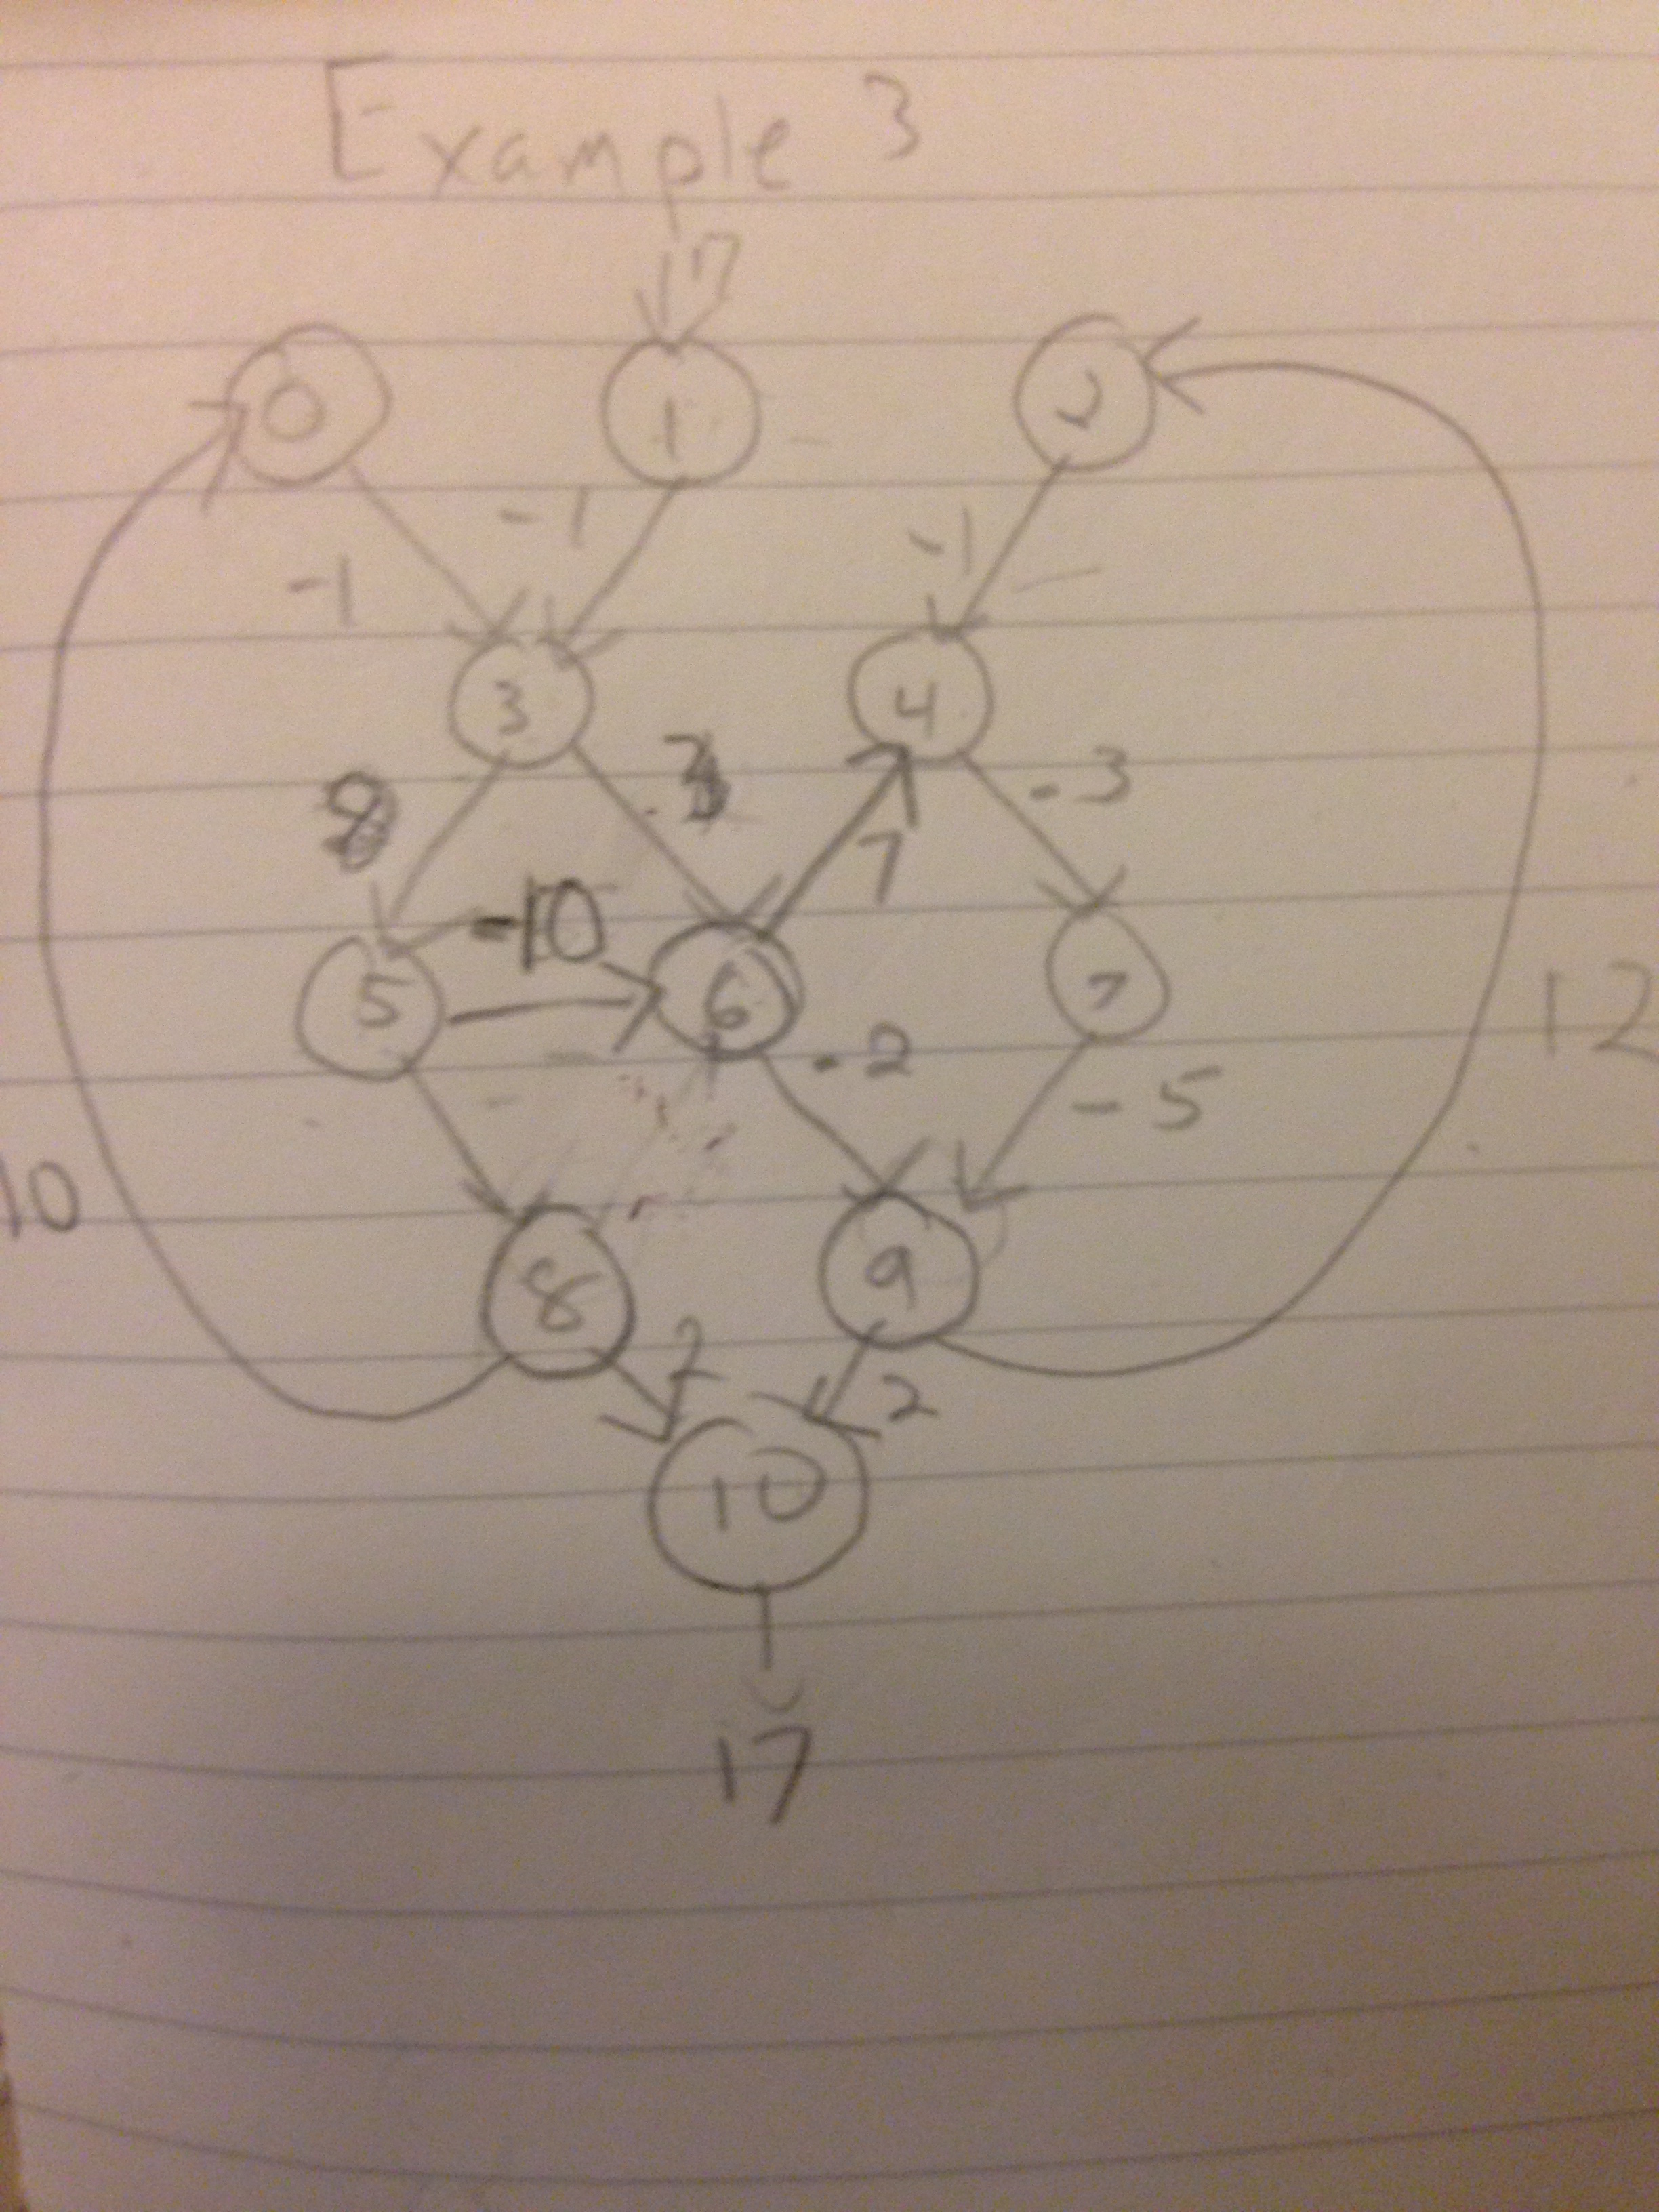 Example 3
17
0 1 2
-1 -1 -1
3 4
-3
7
-10
5 6 7
-2
12
-5
10
8 9
2 2
10
17